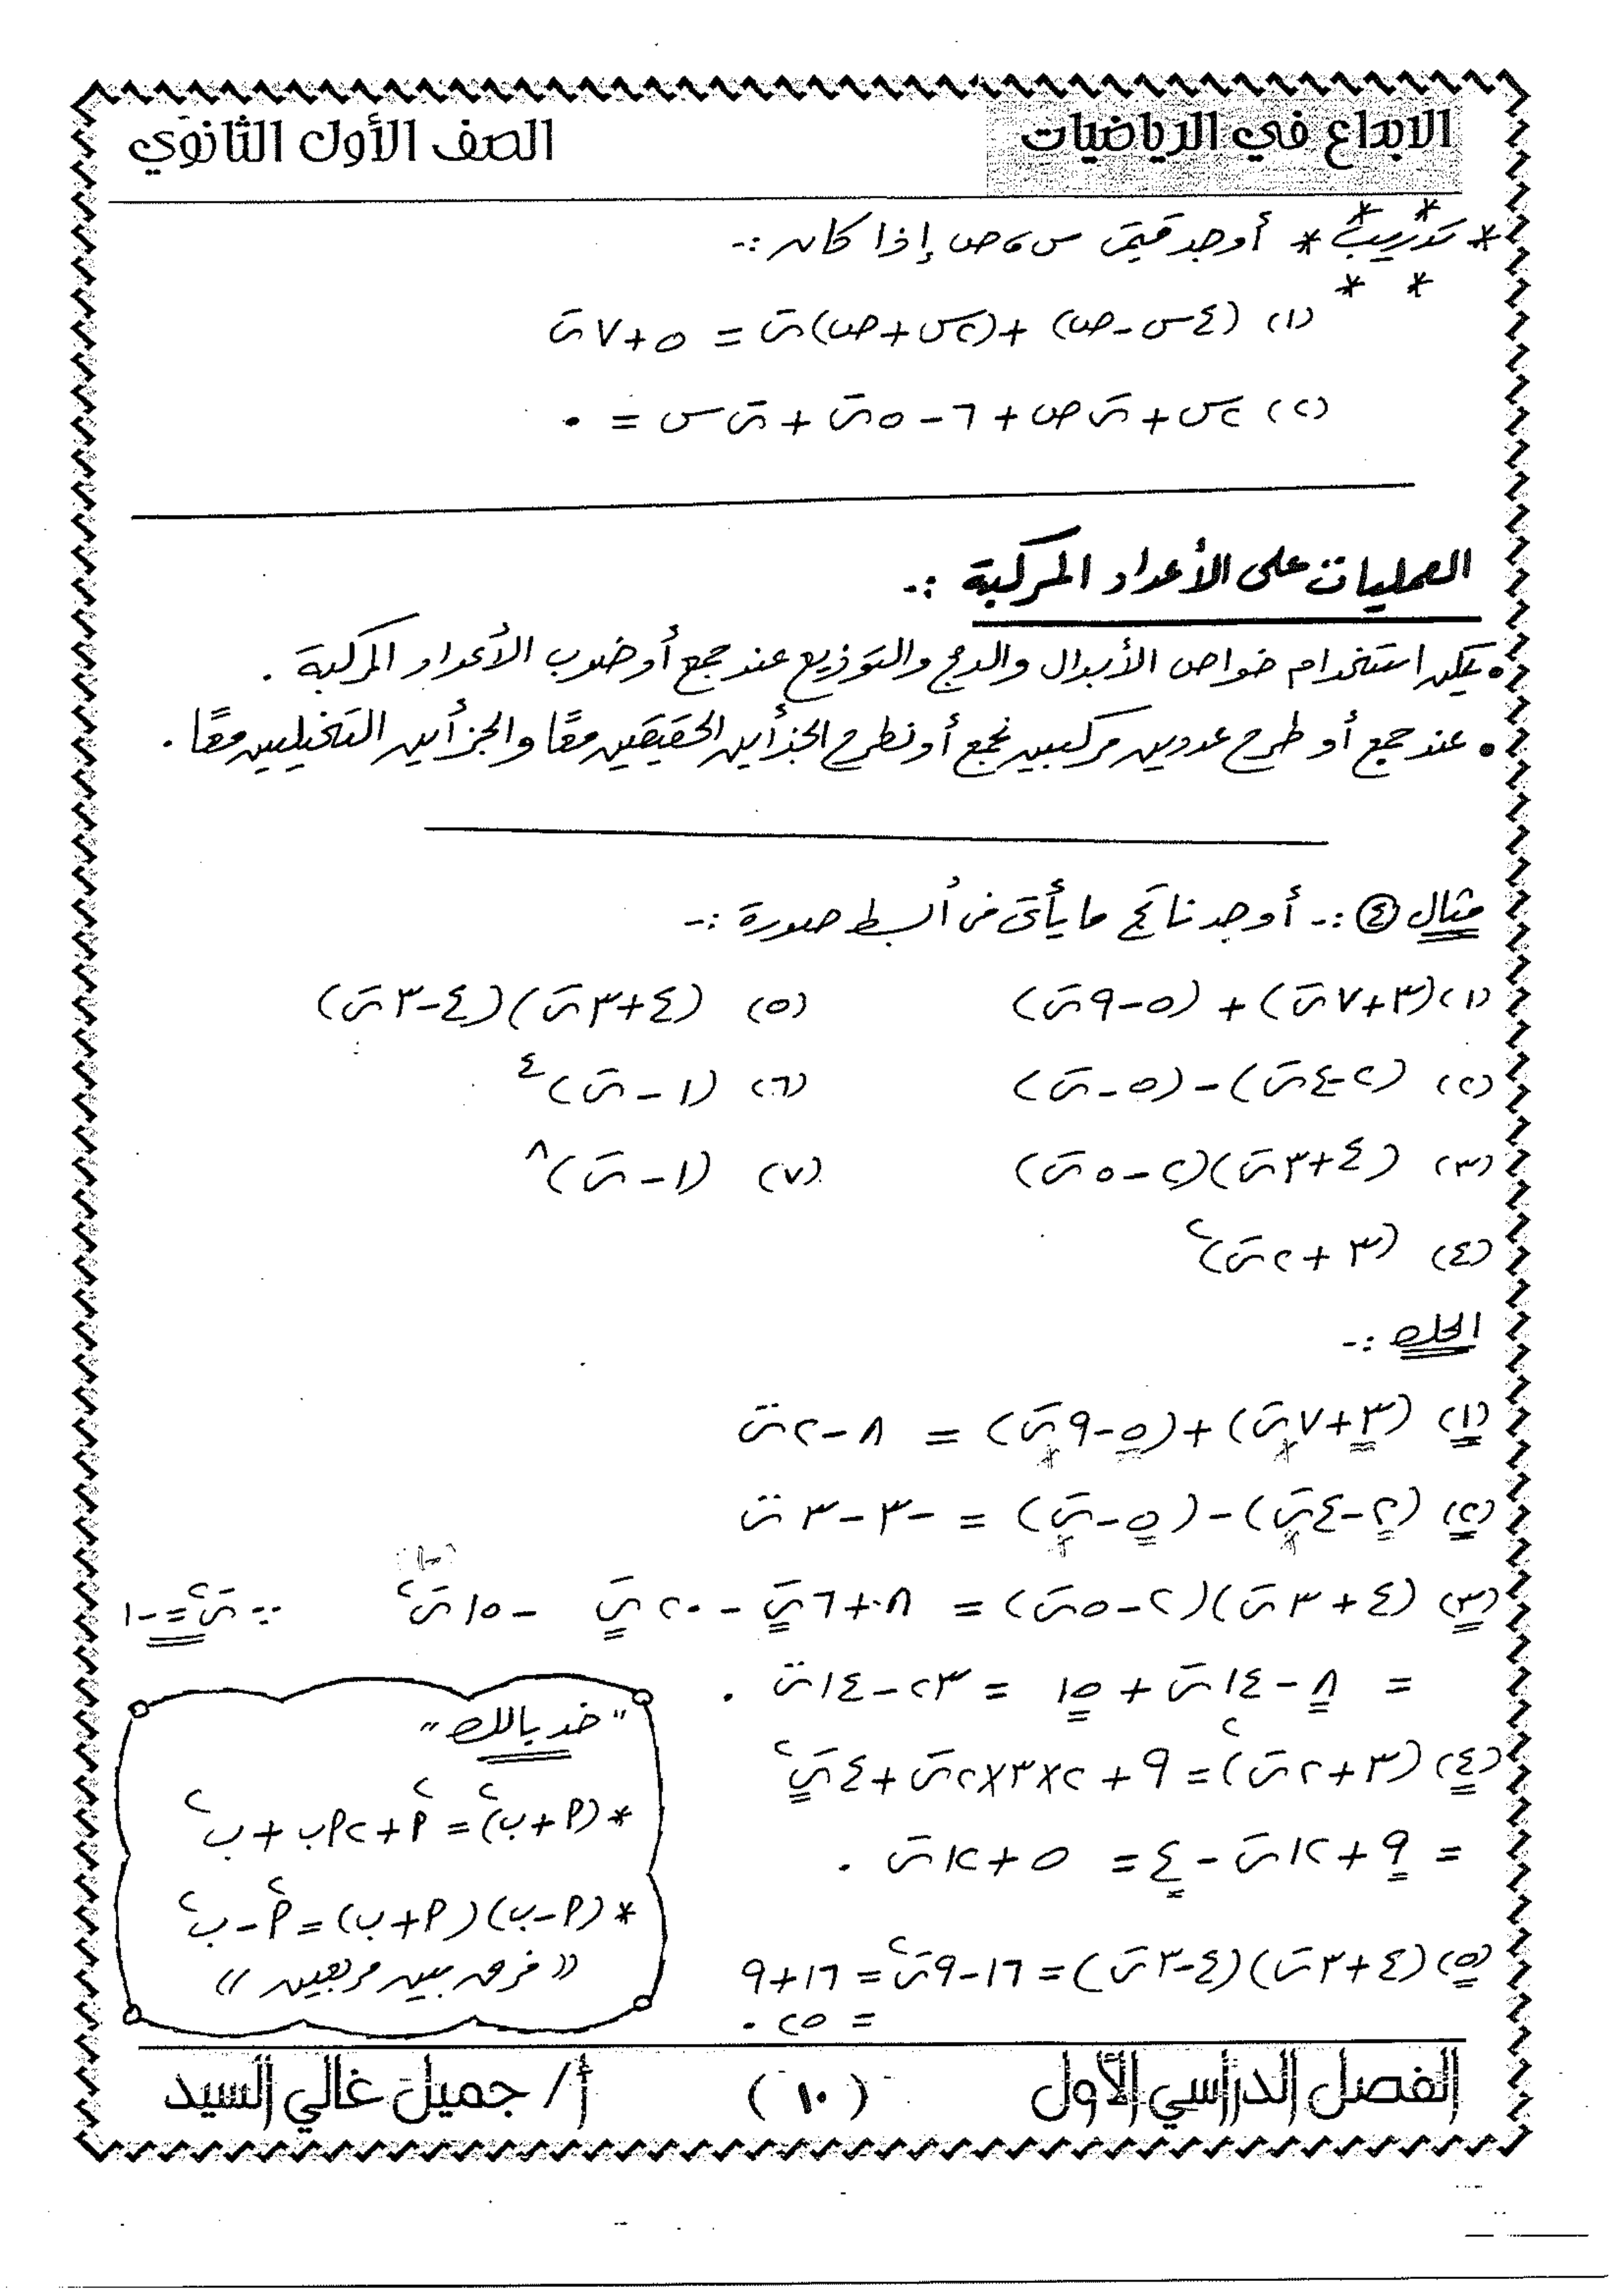 الابداع في الرياضيات
الصف الأول الثانوي
* تدريب * أوجد قيمتى س ، ص إذا كان :-
(١) (٤س - ص) + (٢س + ص)ت = ٥ + ٧ت
(٢) ٢س + ت ص + ٦ - ٥ت + ت س = ٠
العمليات على الأعداد المركبة :-
• يمكن استخدام خواص الأبدال والدمج والتوزيع عند جمع أو ضرب الأعداد المركبة .
• عند جمع أو طرح عددين مركبين نجمع أو نطرح الجزأين الحقيقين معًا والجزأين التخيليين معًا .
مثال ④ :- أوجد ناتج ما يأتى فى أبسط صورة :-
(١) (٣ + ٧ت) + (٥ - ٩ت)
(٥) (٤ + ٣ت)(٤ - ٣ت)
(٢) (٢ - ٤ت) - (٥ - ت)
(٦) (١ - ت)^٤
(٣) (٤ + ٣ت)(٢ - ٥ت)
(٧) (١ - ت)^٨
(٤) (٣ + ٢ت)^٢
الحل :-
(١) (٣ + ٧ت) + (٥ - ٩ت) = ٨ - ٢ت
(٢) (٢ - ٤ت) - (٥ - ت) = -٣ - ٣ت
(-١)
(٣) (٤ + ٣ت)(٢ - ٥ت) = ٨ + ٦ت - ٢٠ت - ١٥ت^٢ ∵ ت^٢ = -١
= ٨ - ١٤ت + ١٥ = ٢٣ - ١٤ت .
(٤) (٣ + ٢ت)^٢ = ٩ + ٢×٣×٢ت + ٤ت^٢
= ٩ + ١٢ت - ٤ = ٥ + ١٢ت .
(٥) (٤ + ٣ت)(٤ - ٣ت) = ١٦ - ٩ت^٢ = ١٦ + ٩
= ٢٥ .
"خد بالك"
* (أ + ب)^٢ = أ^٢ + ٢أب + ب^٢
* (أ - ب)(أ + ب) = أ^٢ - ب^٢
«فرق بين مربعين»
الفصل الدراسي الأول
( ١٠ )
أ/ جميل غالي السيد